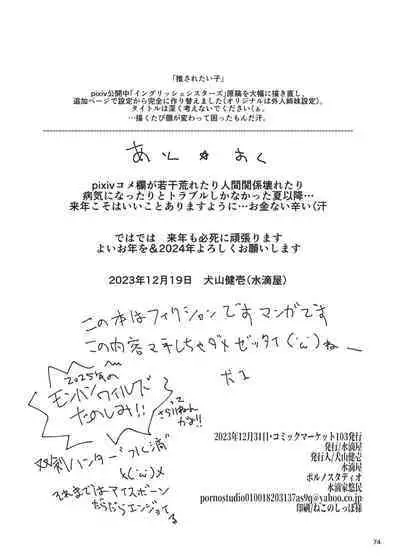 「推されたい子」
pixiv公開中「イングリッシュシスターズ」原稿を大幅に描き直し、
追加ページで設定から完全に作り替えました（オリジナルは外人姉妹設定）。
タイトルは深く考えないでください（ぁ。
…描くたび顔が変わって困ったもんだ汗。
pixivコメ欄が若干荒れたり人間関係壊れたり
病気になったりとトラブルしかなかった夏以降…
来年こそはいいことありますように…お金ない辛い（汗
ではでは　来年も必死に頑張ります
よいお年を&2024年よろしくお願いします
2023年12月19日　犬山健壱（水滴屋）
この本はフィクションです マンガです
この内容マネしちゃダメ ゼッタイ(´;ω;`)ねー
犬1
2025年の
モンハンワイルズ
たのしみ!!
って
さらいねん
かよ!!
双剣ハンター
それまではアイスボーン
だらだらエンジョイする
2023年12月31日・コミックマーケット103発行
発行/水滴屋
発行人/犬山健壱
水滴屋
ポルノスタディオ
水滴家悠民
pornostudio010018203137as9q@yahoo.co.jp
印刷/ねこのしっぽ様
74